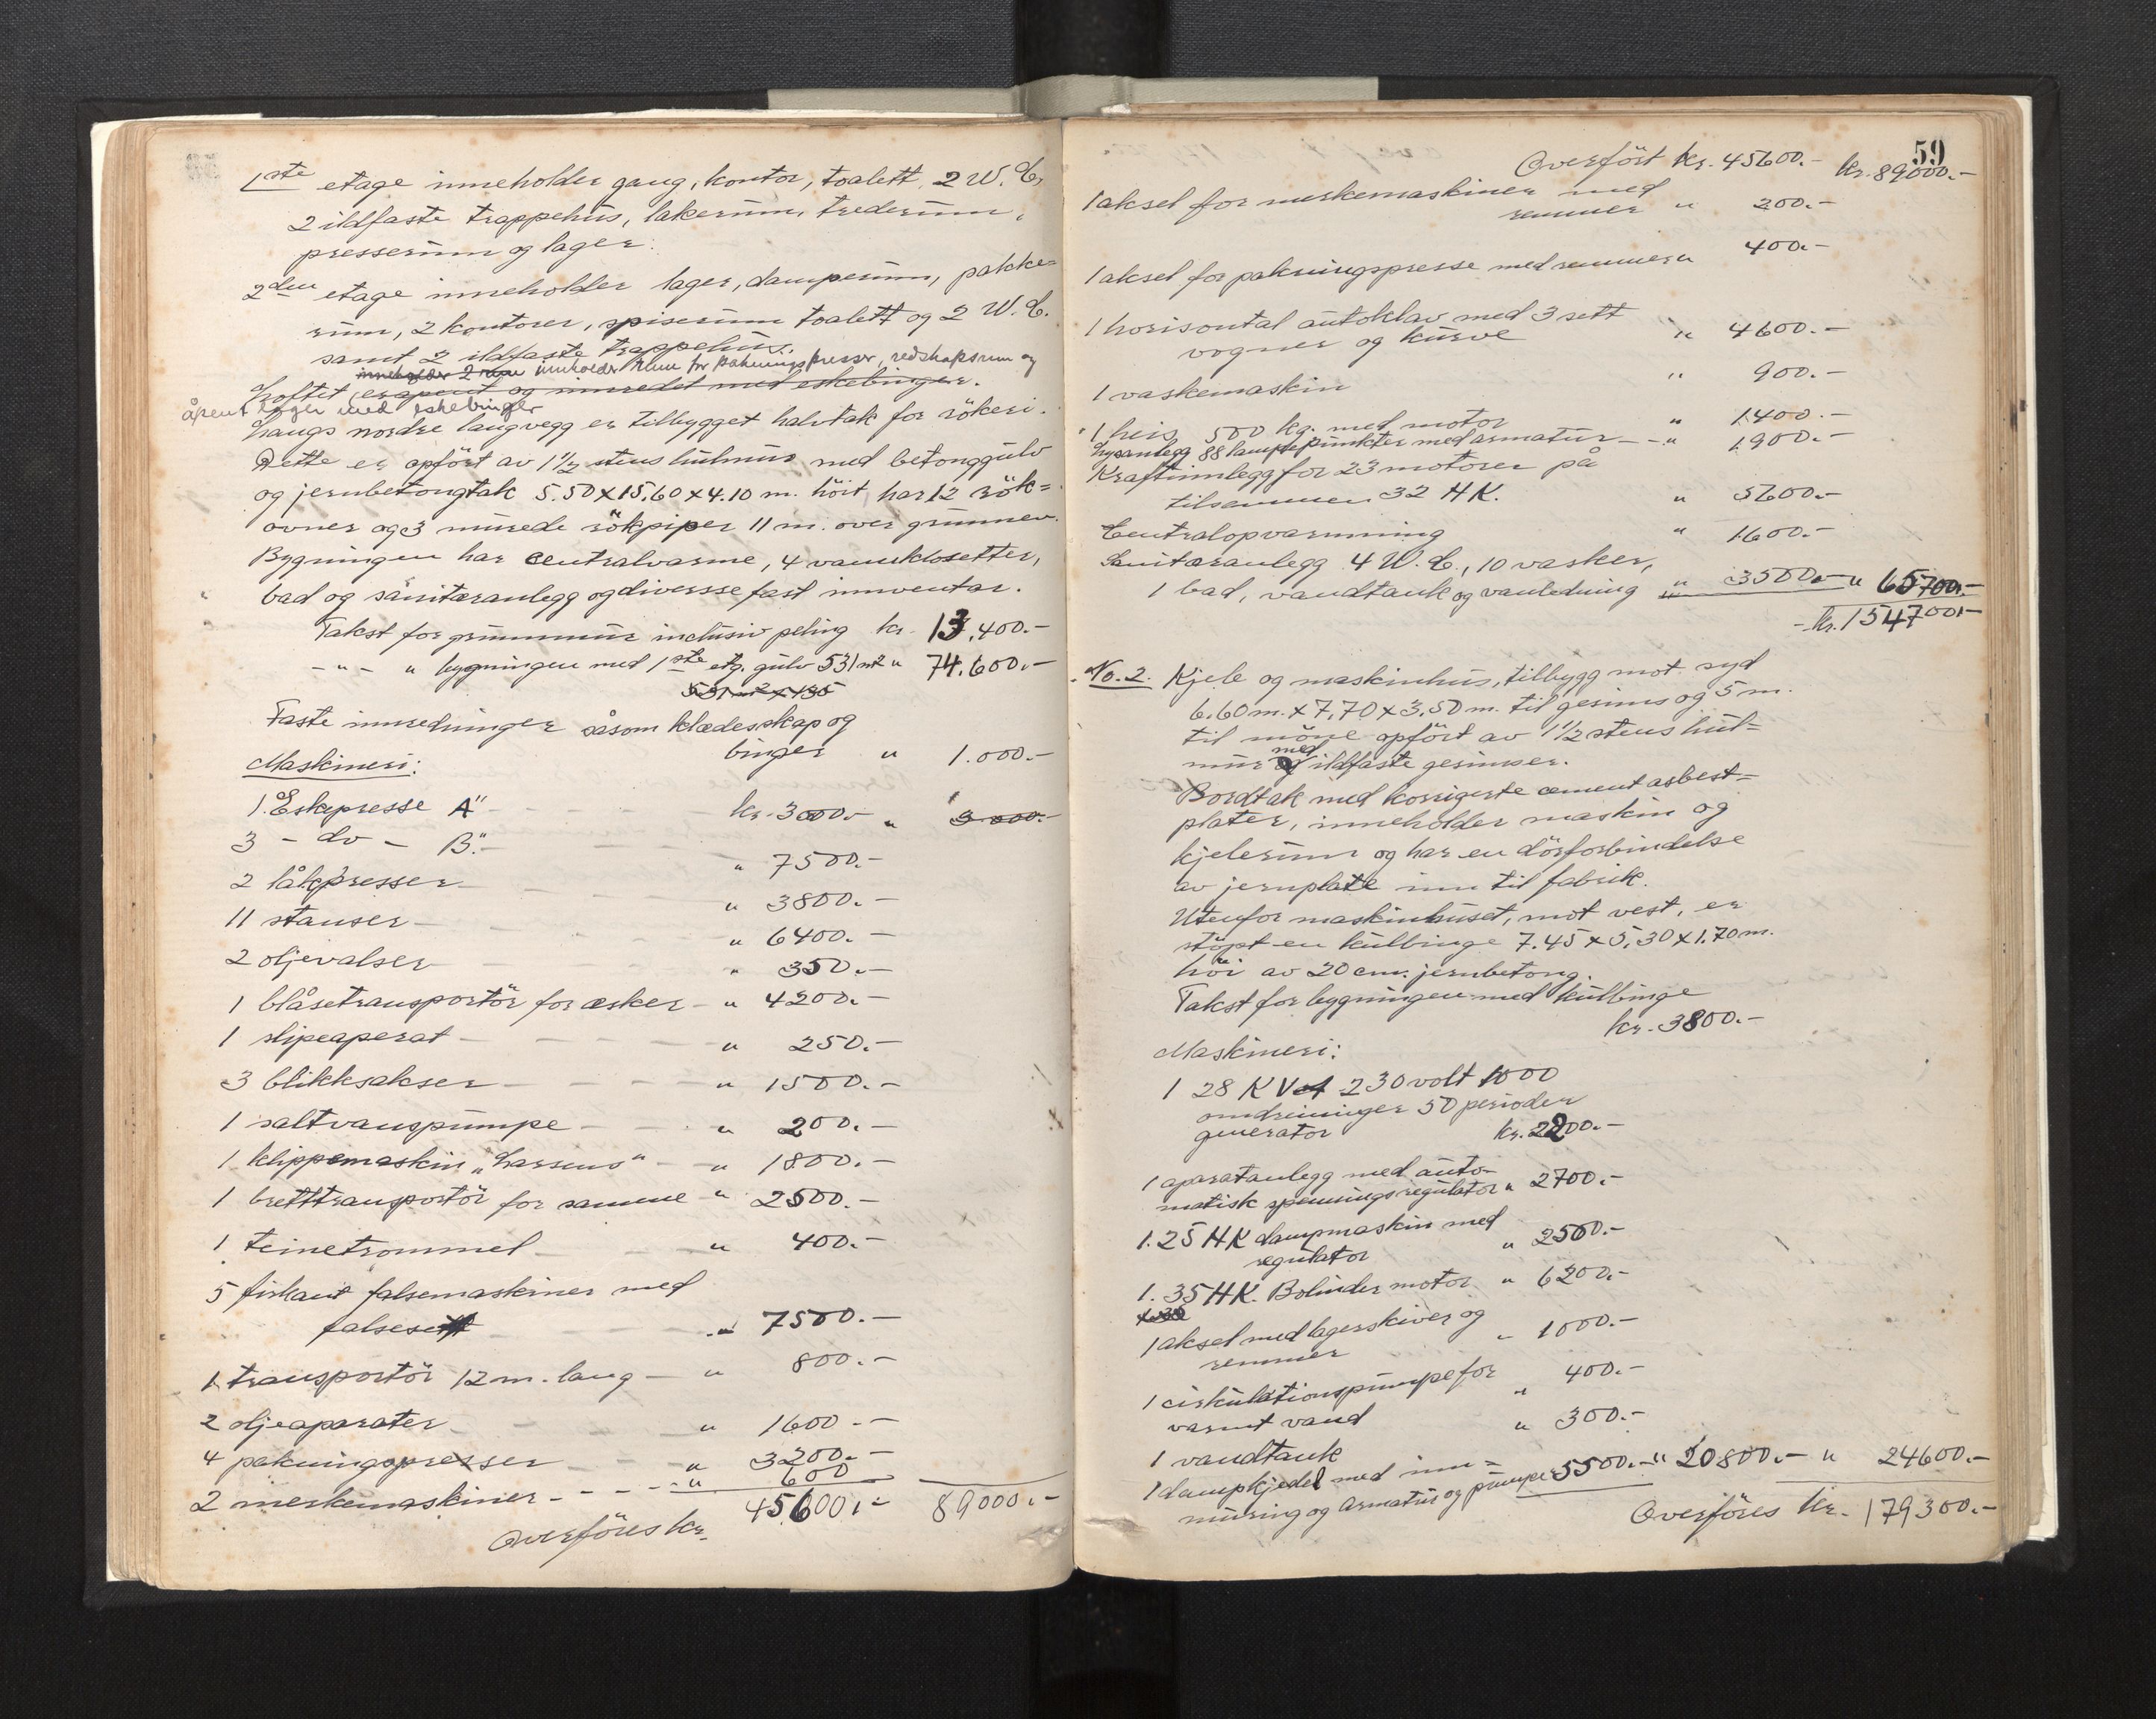 1ste etage inneholder gang, kontor, toalett, 2 W.C,
2 ildfaste trappehus, lakerum, trederum,
presserum og lager.
2den etage inneholder lager, damperum, pakke=
rum, 2 kontorer, spiserum toalett og 2 W.C.
samt 2 ildfaste trappehus.
inneholder 2 rum inneholder rum for pakningspresser, redskapsrum og
Loftet er apent og innredet med eskebinger.
åpent lager med eskebinger
Langs nordre langvegg er tilbygget halvtak for rökeri.
Dette er opfört av 1 1/2 stens hulmur med betonggulv
og jernbetongtak 5.50 x 15,60 x 4.10 m. höit, har 12 rök=
ovner og 3 murede rökpiper 11 m. over grunnen.
Bygningen har centralvarme, 4 vannklosetter,
bad og sanitæranlegg og diversse fast innventar.
Takst for grunnmur inclusiv peling kr. 13,400.-
-"- " bygningen med 1ste etg. gulv 531 m2 " 74.600.-
531 m2 x 135
Faste innredninger såsom klædesskap og
binger " 1.000.-
Maskineri:
1 Eskepresse A" kr. 3000.- " 3000.-
3 - do - B." " 7500.-
2 låkpresser " 3800.-
11 stanser " 6400.-
2 oljevalser " 350.-
1 blåsetransportör for æsker - " 4200.-
1 slipeaperat - " 250.-
3 blikksakser - " 1500.-
1 saltvanspumpe - " 200.-
1 klippemaskin „Larsens" - " 1800.-
1 bretttransportör for samme - " 2500.-
1 teinetrommel - " 400.-
5 firkant falsemaskiner med
falsesett " 7500.-
1 transportör 12 m. lang - " 800.-
2 oljeaparater " 1600.-
4 pakningspresser " 3200.-
2 merkemaskiner - " 600
Overföres kr. 45600.- 89000.-
59
Overfört kr. 45600.- kr. 89000.-
1 aksel for merkemaskiner med
remmer " 200.-
1 aksel for pakningspresse med remmer " 400.-
1 horisontal autoklav med 3 sett
vogner og kurve " 4600.-
1 vaskemaskin " 900.-
1 heis 500 kg. med motor " 1400.-
Lysanlegg 88 lampepunkter med armatur - - " 1900.-
Kraftinnlegg for 23 motorer på
tilsammen 32 HK. " 5600.-
Centralopvarmning " 1600.-
Sanitæranlegg 4 W.C., 10 vasker,
1 bad, vandtank og vanledning " 3500.- " 65700.-
- kr. 154700.-
No. 2. Kjele og maskinhus, tilbygg mot syd
6.60 m. x 7,70 x 3,50 m. til gesims og 5 m.
til möne opfört av 1 1/2 stens hul=
med
mur og ildfaste gesimser.
Bordtak med korrigerte cement asbest=
plater, inneholder maskin og
kjelerum og har en dörforbindelse
av jernplate inn til fabrik.
Utenfor maskinhuset, mot vest, er
stöpt en kullbinge 7.45 x 5,30 x 1.70 m.
höi av 20 cm. jernbetong.
Takst for bygningen med kullbinge
kr. 3800.-
Maskineri:
1 28 K V A 230 volt 1000
omdreininger 50 perioder
generator kr. 2200.-
1 aparatanlegg med auto-
matisk spenningsregulator " 2700.-
1. 25 HK dampmaskin med
regulator " 2500.-
1. 35 HK. Bolinder motor " 6200.-
1 aksel med lagerskiver og
remmer " 1000.-
1 cirkulationspumpe for
varmt vand " 400.-
1 vandtank " 300.-
1 dampkjedel med inn=
muring og armatur og pumper 5500.- " 20800.- " 24600.-
Overföres kr. 179300.-